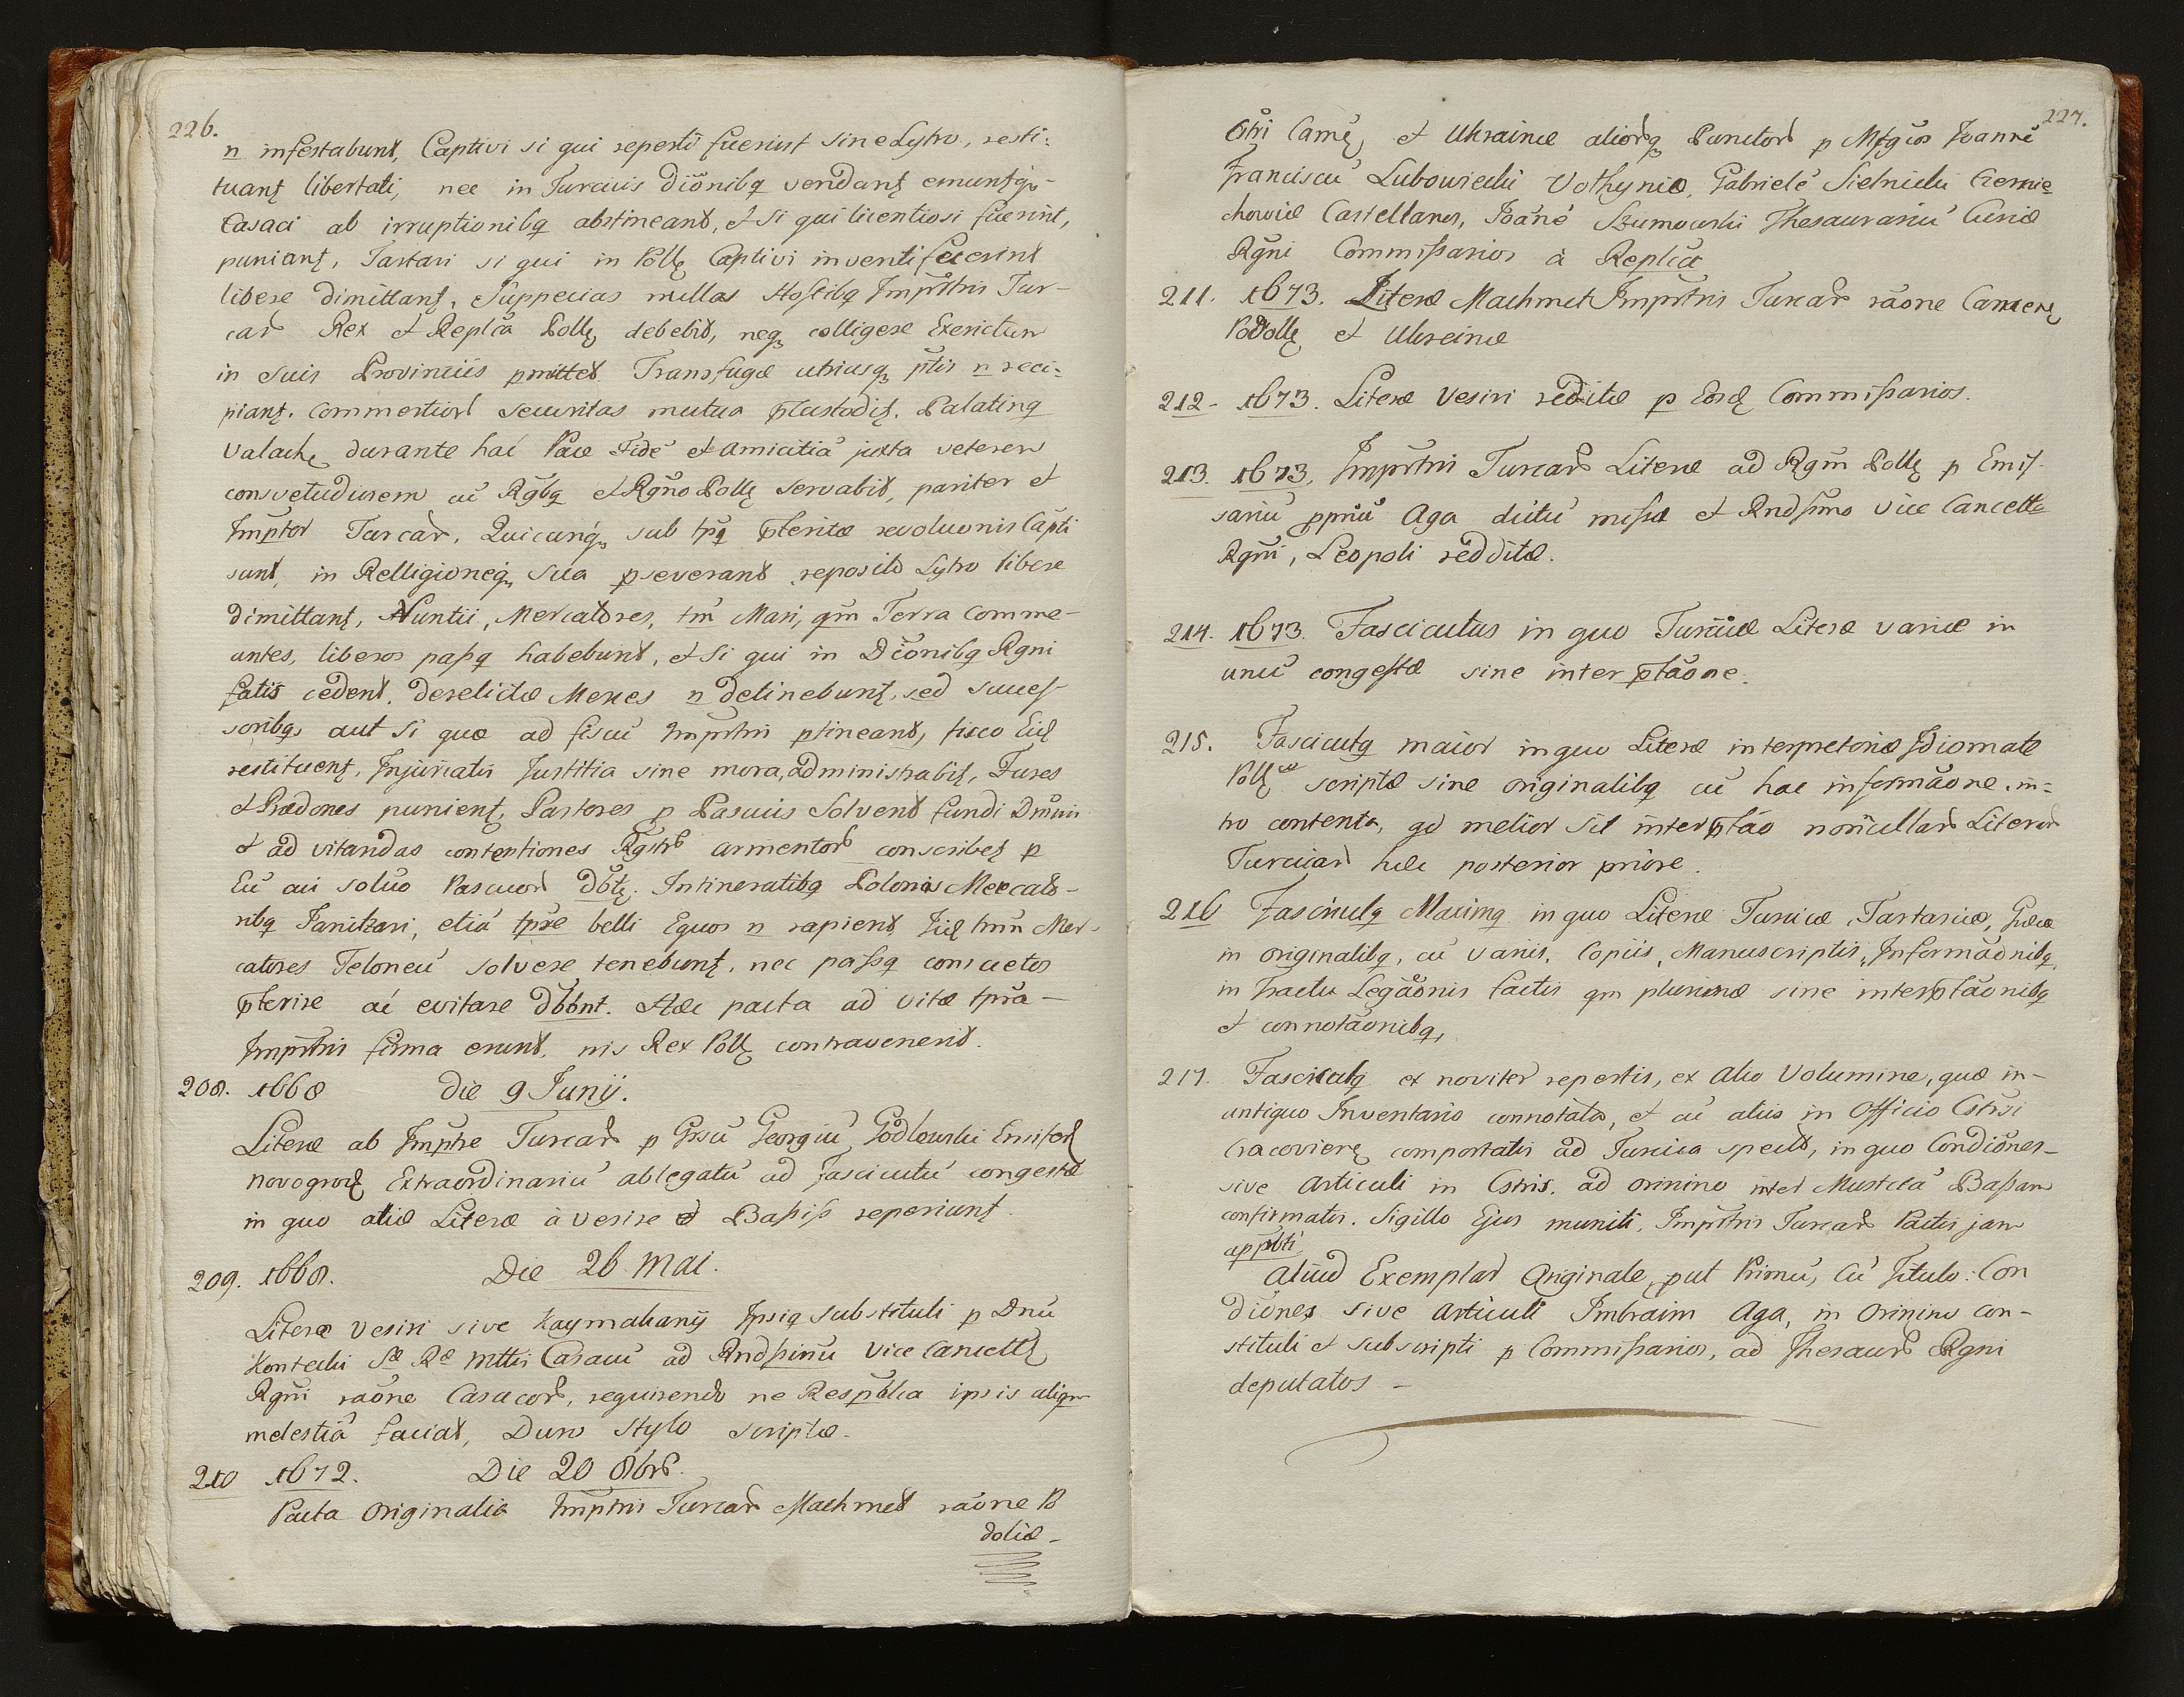 226.
n infestabunt, Captivi si qui reperti fuerint sine Lytro, resti:
tuant libertati, nec in Turciis diõnibq vendant emuntq-
Casaci ab irruptionibq abstineant, et si qui licentiosi fuerint,
puniant, Tartari si qui in Poll Captivi inventi fuerint
libere dimittant, Suppecias nullas Hostibq Imprtris Tur-
car Rex et Replca Poll debebit, neq colligere Exercitum
in suis Provinciis pmittet Transfugæ utriusq ptis n reci=
piant. Commertior securitas mutua ptustodit. Palatinq
Valach durante hac Pace Fidẽ et amicitiã juxta veterem
consvetudinem cũ Rgbq et Rgno Poll servabit, pariter et
Imptor Turcar. Quicunq sub tpq pteritæ revoluonis Capti
sunt, in Relligioneq sua pseverant reposito Lytro libere
dimittant, Nuntii, Mercatores, tm Mari, qm Terra Comme-
antes, liberos paßq habebunt, et si qui in Diõnibq Rgni
fatis cedent. derelictæ Merces n detinebunt, sed succes-
soribq aut si quæ ad fiscũ Imprtri ptineant, fisco Eid
restituent, Injuriatis Justitia sine mora, administrabit, Fures
et Prædones punient, Pastores p Pascuis Solvent fundi Dmini
et ad vitandas contentiones Rgstr armentor conscribet p
Eũ cui solvo Pascuor dbt. Intineratibq Polonis Mercato-
ribq Janitzari, etiã tpre belli Equos n rapient, Iid tmn Mer-
catores Teloneũ solvere tenebunt, nec paßq consuetos
pterire ac evitare dbbnt. Hæc pacta ad vitæ tpra-
Imprtris firma erunt, nis Rex Poll contravenerit.
208. 1668 die 9 Junij.
Literæ ab Imptre Turcar p Grsũ Georgiũ Godlewski Ensifer
Novogrod Extraordinariũ ablegatũ ad fasciculũ congestæ
in quo aliæ Literæ à Vesire et Baßiß reperiunt.
209. 1668. Die 26 Mai.
Literæ Vesiri sive Kaymakanij Ipsiq substituti p Dnũ
Kontecki Sæ Ræ Mttis Casacũ ad Rndßimũ Vice Cancell
Rgni raõne Casacor, requirendo ne Respublca ipsis aliqm
molestiã faciat, Duro Stylo scriptæ.
210 1672. Die 20 8br.
Pacta Originalia Imptris Turcar Machmet raõne Po
doliæ-
227.
Ctri Camẽ et Ukrainæ aliorq Punctor p Mfgcos Joannẽ
Franciscũ Lubowiecki Volhyniæ, Gabrielẽ Sielnicki Czernie
choviæ Castellanos, Joãnẽ Szumowski Thesaurariũ Curiæ
Rgni Commißarios à Replca
211. 1673. Literæ Machmet Imprtris Turcar raõne Camene
Podoll et Ukrainæ
212- 1673. Literæ Vesiri redditæ p Eosd Commißarios.
213. 1673. Imprtris Turcar Literæ ad Rgm Poll p Emis-
sariũ ppriũ Aga dictũ mißæ et Rndßimo Vice Cancell
Rgni, Leopoli redditæ.
214. 1673. Fasciculus in quo Turcicæ Literæ variæ in
unũ congestæ sine interptaone.
215. Fasciculq maior in quo Literæ interpretoriæ Idiomate
Poll co scriptæ sine originalibq cũ hac informãone. in=
tro contenta, qd melior sit interptao nonnullar Literar
Turcicar hæc posterior priore.
216 Fasciculq Maximq in quo Literæ Turcicæ, Tartaricæ, Græcæ
in originalibq, cũ variis, Copiis, Manuscriptis, Informãonibq,
in tractu Legãonis factis qm plurimæ sine interptãonibq
et connotãonibq,
217. Fasciculq ex noviter repertis, ex alio Volumine, quæ in-
antiquo Inventario connotata, et cũ aliis in Officio Cstrsi
Cracovien comportatis ad Turcica spect, in quo Condiõnes-
sive Articuli in Cstris. ad Orinino inter Mustafã Baßam
confirmatis. Sigillo Ejus muniti, Imprtris Turcar Pactis jam
appbti
Aliud Exemplar Originale, put Primũ, cũ Titulo: Con
diõnes sive Articuli Imbraim Aga, in Orinino con-
stituti et subscripti p Commißarios, ad Thesaur Rgni
deputatos-